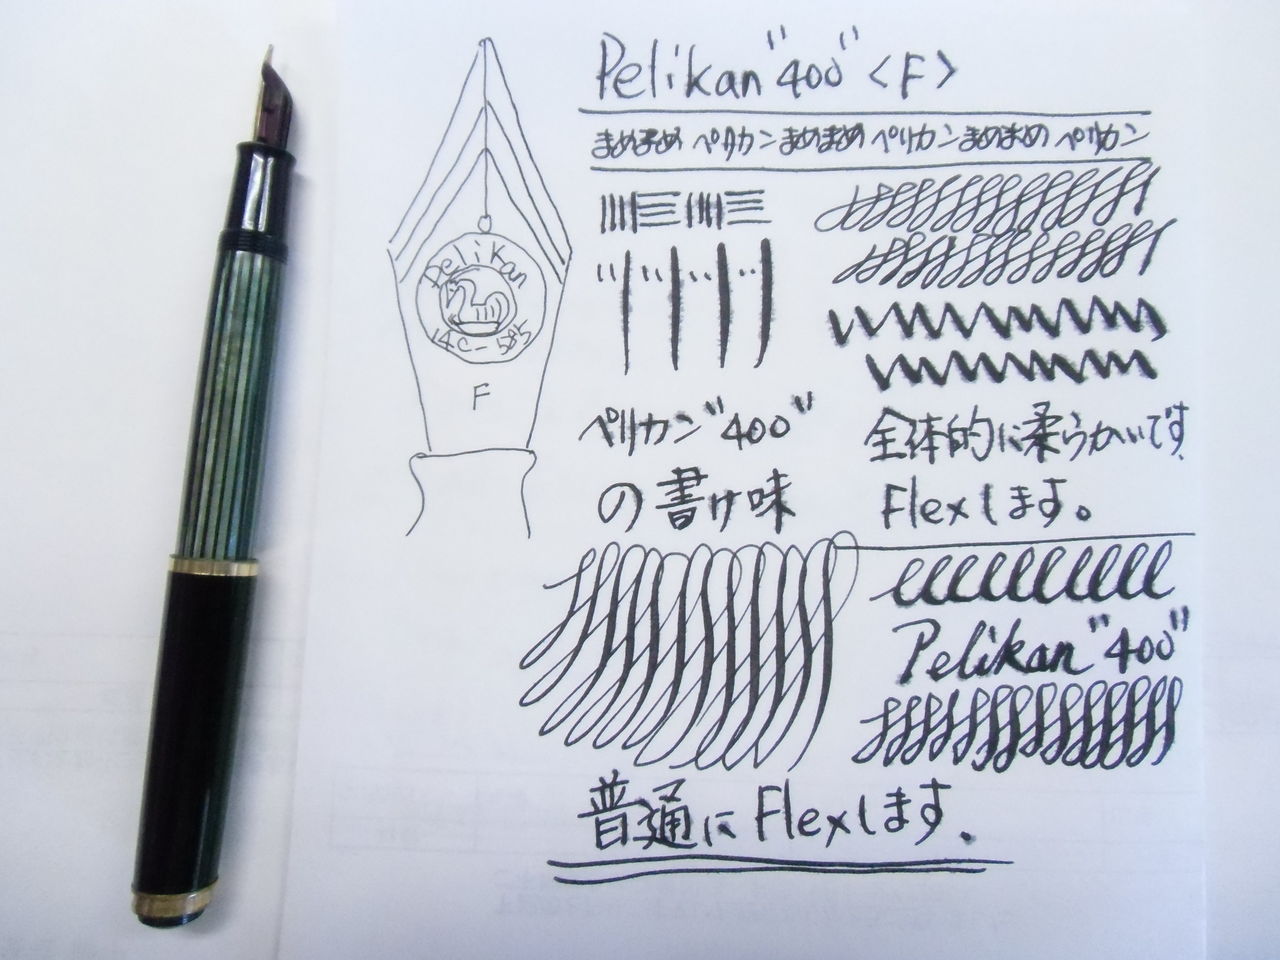 Pelikan "400" <F>
まめまめ ペリカン まめまめ ペリカン まめまめ ペリカン
Pelikan
14C-585
F
ペリカン"400"
の書け味
全体的に柔らかいです
Flexします。
Pelikan"400"
普通にFlexします.